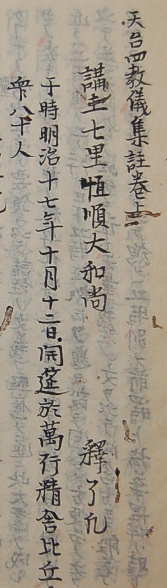 天台四教儀集註卷上
講主七里恒順大和尚 釋了凢
于時明治十七年十月十二日開莚於萬行精舍比丘
衆八千人